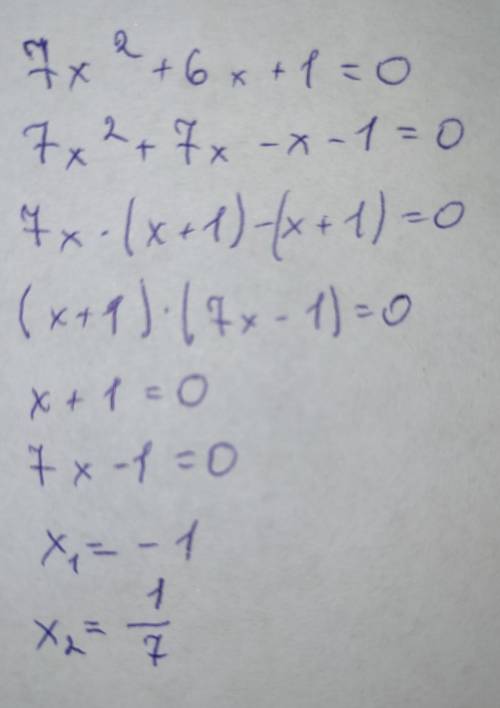 7x² + 6x + 1 = 0
7x² + 7x - x - 1 = 0
7x · (x + 1) - (x + 1) = 0
(x + 1) · (7x - 1) = 0
x + 1 = 0
7x - 1 = 0
x₁ = - 1
x₂ = 1/7